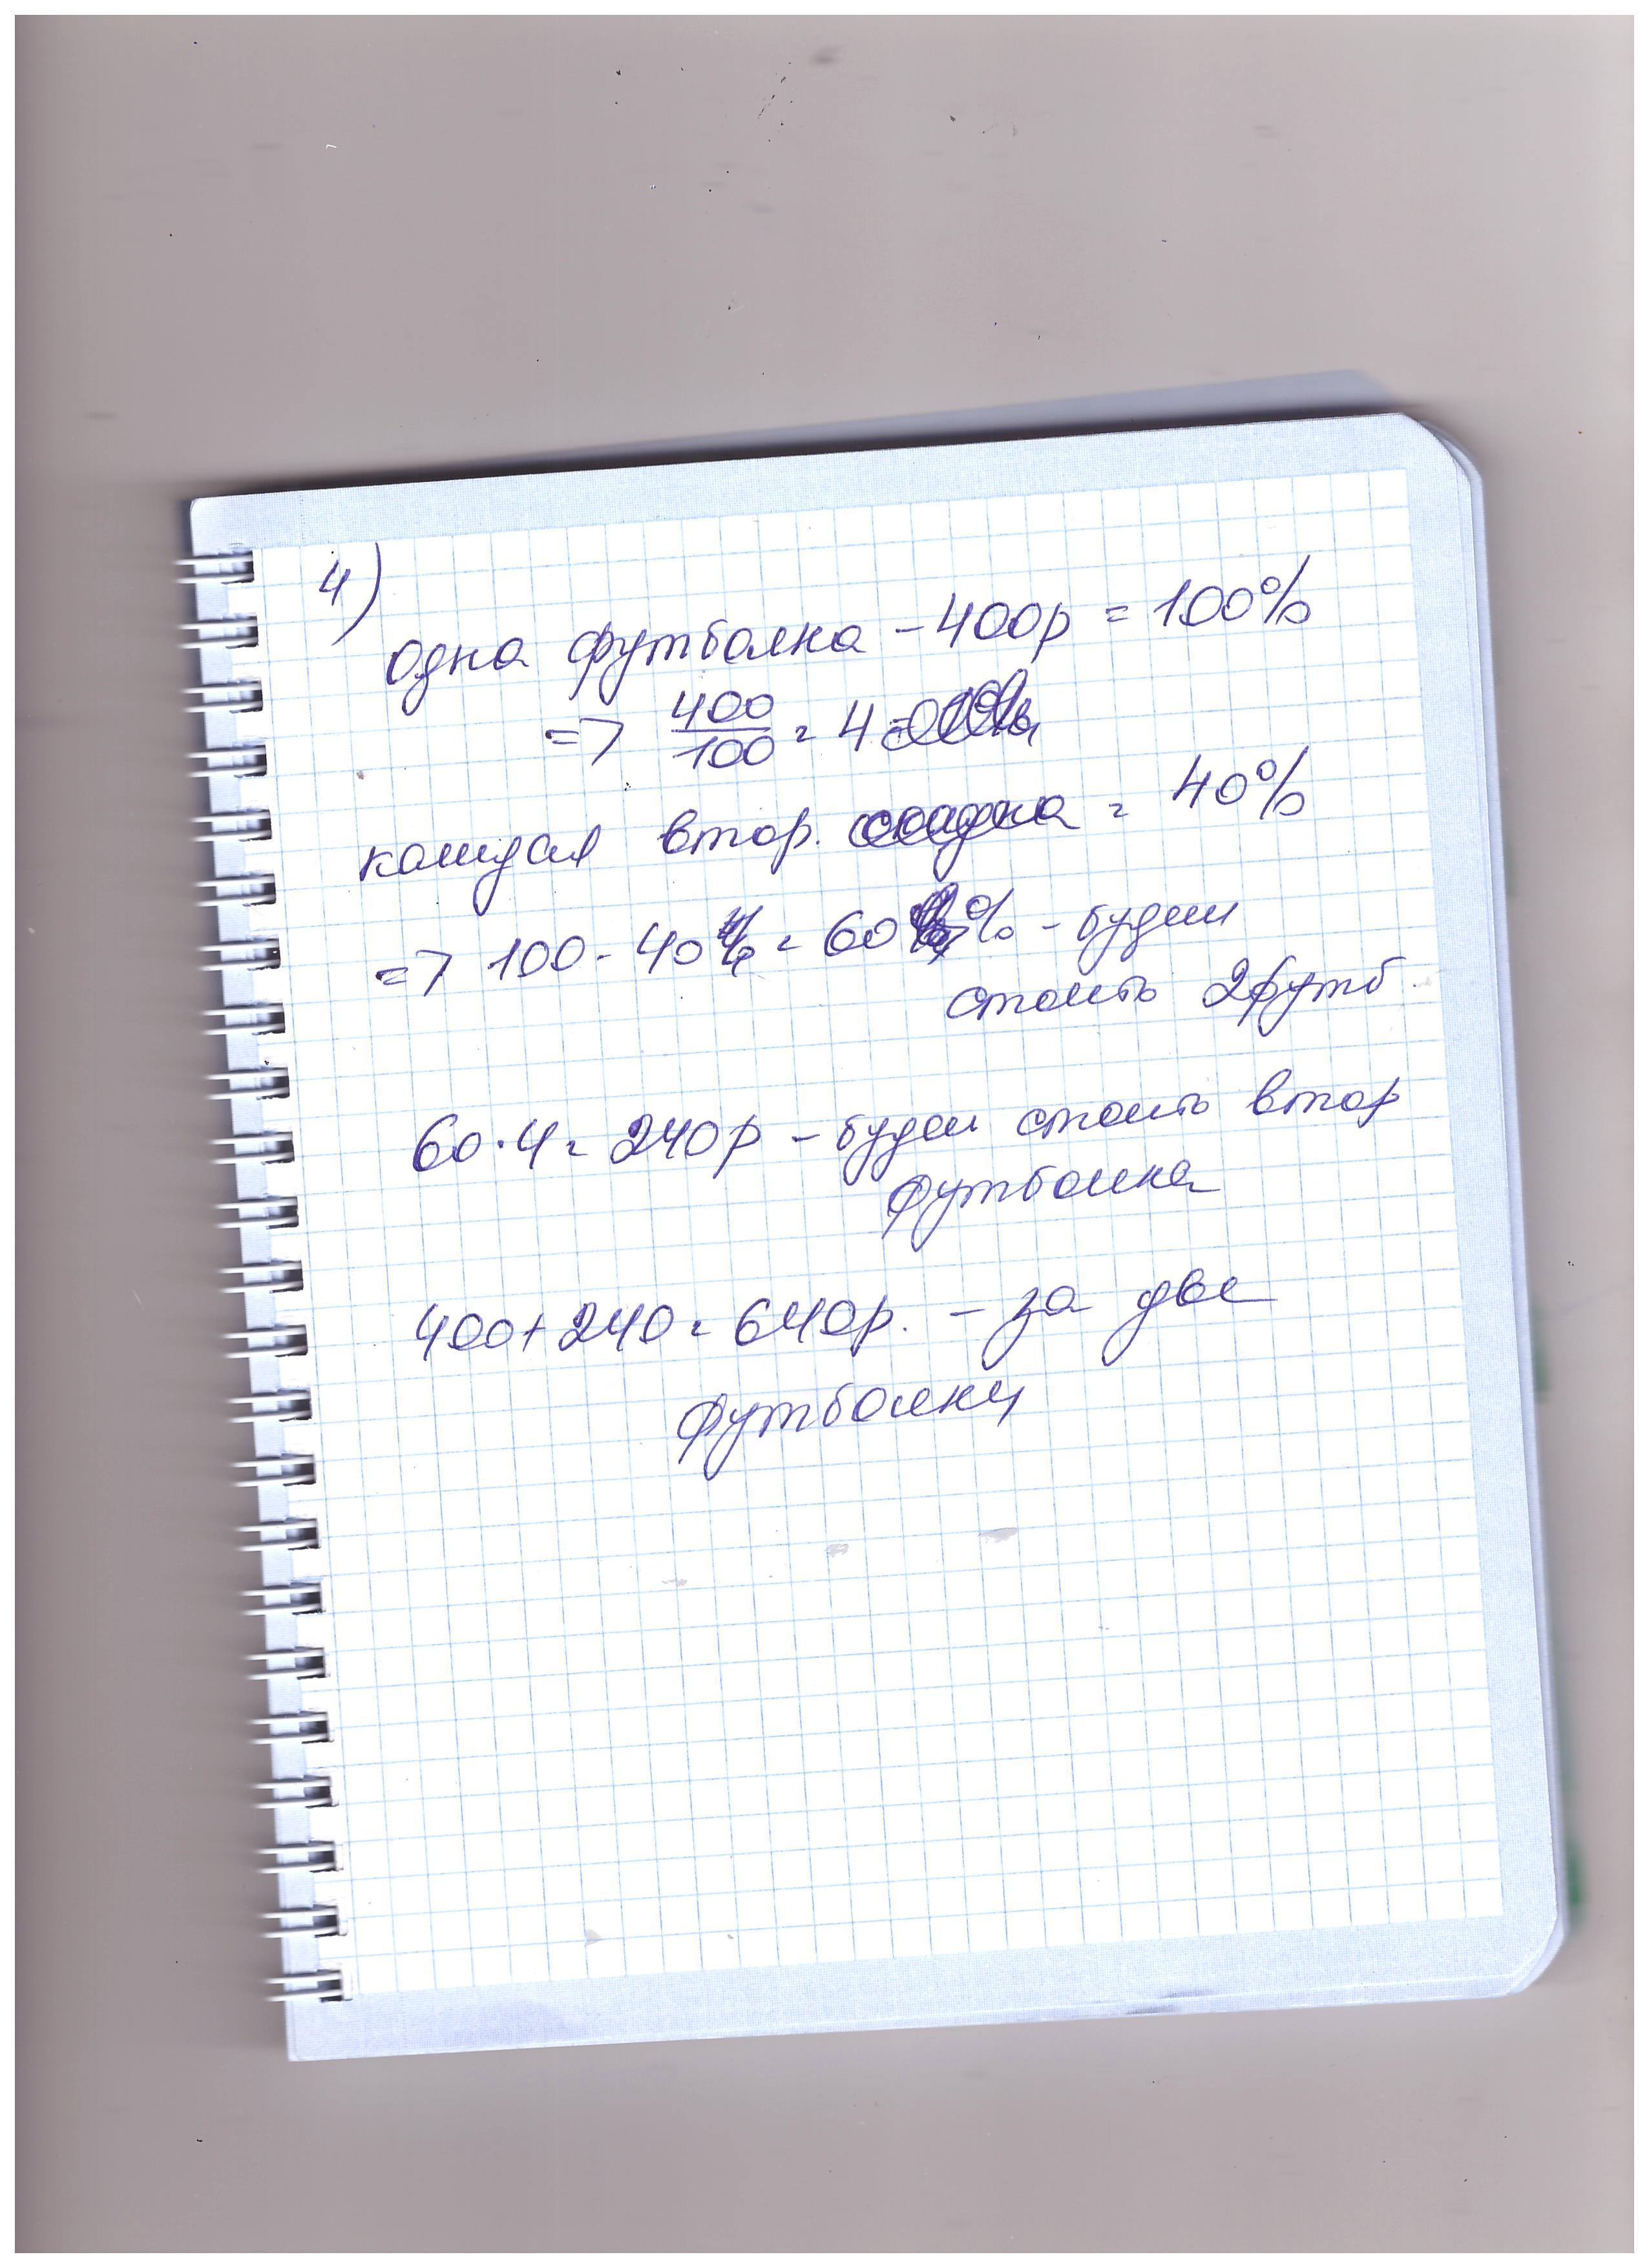 4)
одна футболка - 400р = 100%
=> 400/100 = 4
каждая втор. скидка = 40%
=> 100 - 40% = 60% - будет
стоить 2футб.
60·4 = 240р - будет стоить втор
футболка
400+240 = 640р. - за две
футболки